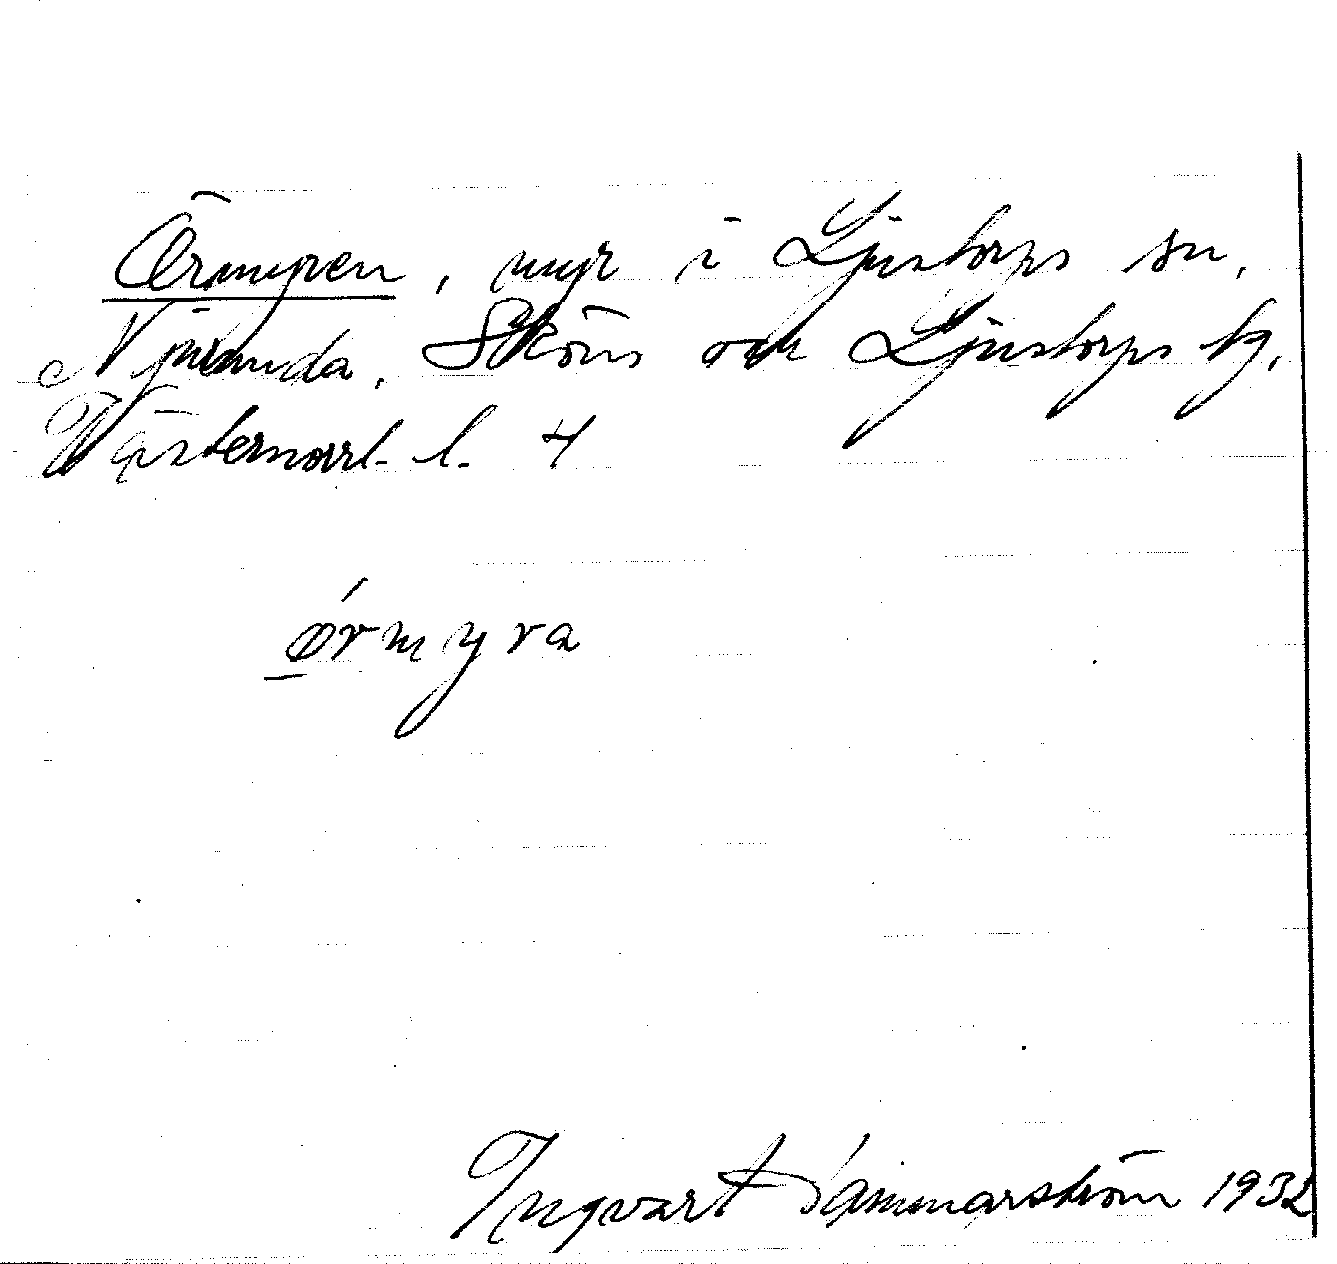 Örmyren, myr i Ljustorps sn,
Njurunda, Sköns och Ljustorps tg,
Västernorrl. l. 4
ǿrmyra
Ingvart Hammarström 1932